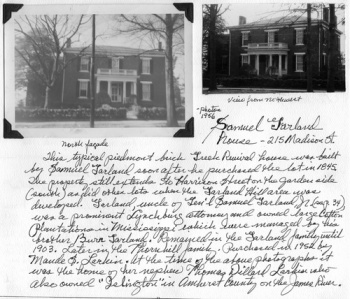 North façade
Photos
1956
View from northwest
Samuel Garland
House - 215 Madison St
This typical piedmont brick Greek Revival house was built
by Samuel Garland soon after he purchased the lot in 1845.
The property still extends to Harrison Street on the Garden side
(south) as did other lots when the Garland Hill area was
developed. Garland, uncle of Gen'l Samuel Garland, Jr
was a prominent Lynchburg attorney and owned large Cotton
Plantations in Mississippi which were managed by his
brother Burr Garland. Remained in the Garland family until
1903. Later in the Marshall family. Purchased in 1952 by
Maude B. Larkin. At the time of the above photographs it
was the home of her nephew Thomas Dillard Larkin who
also owned "Islington" in Amherst County on the James River.